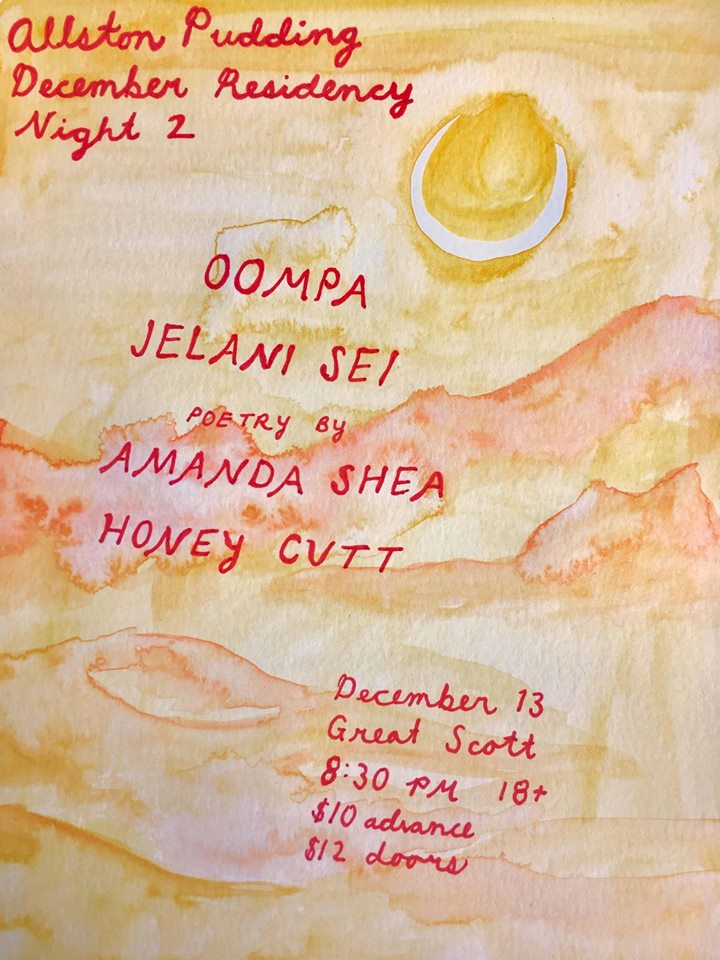 Allston Pudding
December Residency
Night 2
OOMPA
JELANI SEI
POETRY BY
AMANDA SHEA
HONEY CUTT
December 13
Great Scott
8:30 PM 18+
$10 advance
$12 doors